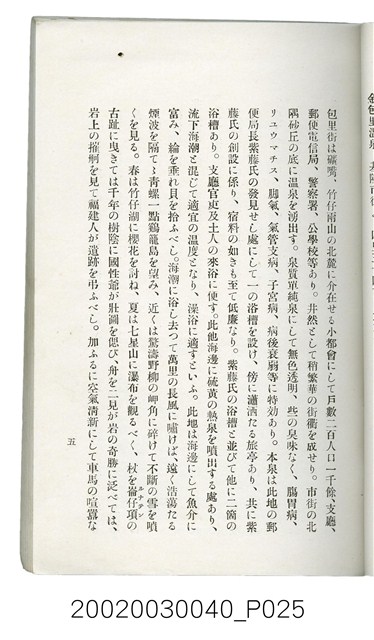 包里街は礦嘴、竹仔兩山の北麓に介在せる小都會にして戶數二百人口一千餘、支廳、
郵便電信局、警察署、公學校等あり。井然として稍繁華の街衢を成せり。市街の北
隅砂丘の底に溫泉を湧出す。泉質單純泉にして無色透明、些の臭味なく、腸胃病、
リユウマチス、脚氣、氣管支病、子宮病、病後衰弱等に特効あり。本泉は此地の郵
便局長紫藤氏の發見せし處にして一の浴槽を設け、傍に瀟洒たる旅亭あり、共に紫
藤氏の創設に係り、宿料の如きも至て低廉なり。紫藤氏の浴槽と並びて他に二箇の
浴槽あり。支廳官吏及土人の來浴に便す。此他海邊に硫黃の熱泉を噴出する處あり、
流下海潮と混じて適宜の溫度となり、澡浴に適すといふ。此地は海邊にして魚介に
富み、綸を垂れ貝を拾ふべし。海潮に浴し去つて萬里の長風に嘯けば、遠く浩蕩たる
煙波を隔てゝ青螺一點鷄籠島を望み、近くは驚濤野柳の岬角に碎けて不斷の雪を噴
くを見る。春は竹仔湖に櫻花を討ね、夏は七星山に瀑布を觀るべく、杖を崙仔頂の
古趾に曳きては千年の樹陰に國性爺が壯圖を偲び、舟を二見が岩の奇勝に泛べては、
岩上の摧舸を見て福建人が遺跡を弔ふべし。加ふるに空氣清新にして車馬の喧囂な
五
20020030040_P025